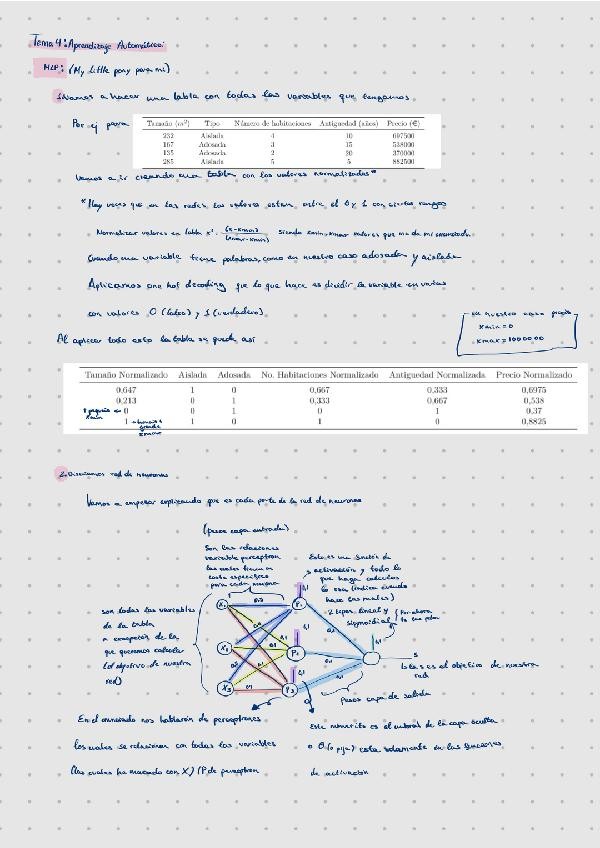 Tema 4: Aprendizaje Automático:
MLP: (My little pony para mi)
1. Vamos a hacer una tabla con todas las variables que tengamos
Por ej para
Tamaño (m²) Tipo Número de habitaciones Antiguedad (años) Precio (€)
232 Aislada 4 10 697500
167 Adosada 3 15 538000
135 Adosada 2 20 370000
285 Aislada 5 5 882500
Vamos a ir creando una tabla con los valores normalizados*
*Hay veces que en las redes los valores estan entre el 0 y 1 con ciertos rangos
Normalizar valores en tabla x' = (x-xmin)/(xmax-xmin) siendo xmin,xmax valores que me da mi enunciado
Cuando una variable tiene palabras, como en nuestro caso adosada y aislada
Aplicamos one hot decoding que lo que hace es dividir la variable en varias
con valores 0 (falso) y 1 (verdadero)
en nuestro caso precio
xmin=0
xmax=1000000
Al aplicar todo esto la tabla se queda así
Tamaño Normalizado Aislada Adosada No. Habitaciones Normalizado Antiguedad Normalizada Precio Normalizado
0,647 1 0 0,667 0,333 0,6975
0,213 0 1 0,333 0,667 0,538
0 0 1 0 1 0,37
1 1 0 1 0 0,8825
xmin
xmax
2. Diseñamos red de neuronas
Vamos a empezar explicando que es cada parte de la red de neuronas
(pesos capa entrada)
Son las relaciones
variable perceptron
las cuales tienen un
coste especifico
para cada neurona
Esto es una función de
activación y todo lo
que haga calculos
lo usa (indica cuando
hace los males)
2 tipos, lineal y
sigmoidal
son todas las variables
de la tabla
a excepción de la
que queremos calcular
(el objetivo de nuestra
red)
X1
X2
X3
P1
P2
P3
0,1
S
la s es el objetivo de nuestra
red
pesos capa de salida
En el enunciado nos hablarán de perceptrones
los cuales se relacionan con todas las variables
(las cuales ha marcado con X) (P de perceptron
Este numerito es el umbral de la capa oculta
esta solamente en las funciones
de activación